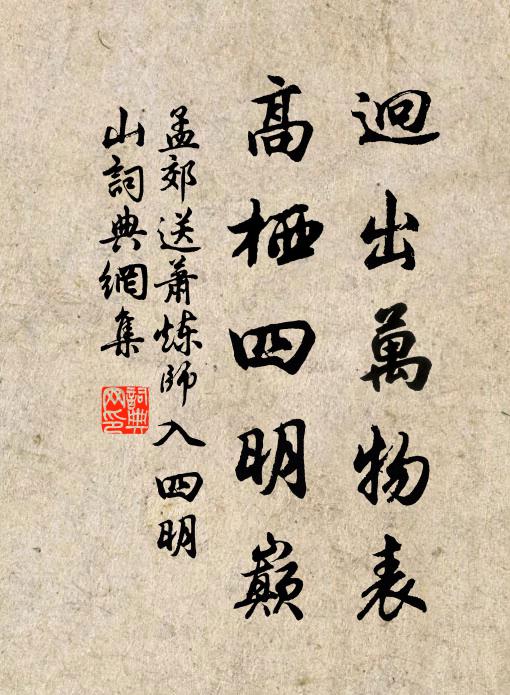 迥出萬物表
高栖四明巔
孟郊送蕭炼師入四明
山詞典網集
詞典
网印